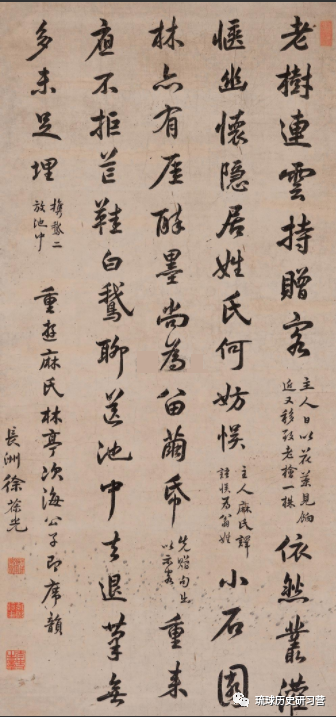 老樹連雲持贈客
主人日以花美見餉
近又移致老檜一株
依然叢灌
愜幽懷隱居姓氏何妨悮
主人麻氏譯
悮為翁姓
小石園
林亦有厓醉墨尚為留繭帋
先
以示客
重来
應不拒芒鞋白鵝聊送池中去退筆無
多未足埋
携鵝二
放池中
重遊麻氏林亭次海公子即席韻
長洲徐葆光
琉球历史研习营